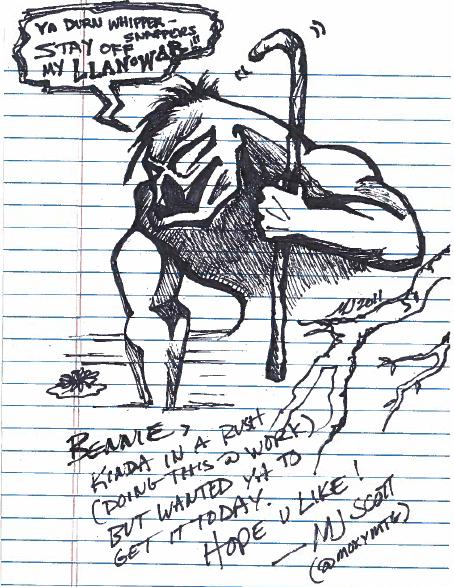 YA DURN WHIPPER-
SNAPPERS
STAY OFF
MY LLANOWAR!!!
MJ 2011
BENNIE,
KINDA IN A RUSH
(DOING THIS @ WORK)
BUT WANTED YA TO
GET IT TODAY.
HOPE U LIKE!
— MJ SCOTT
(@MOXYMTG)